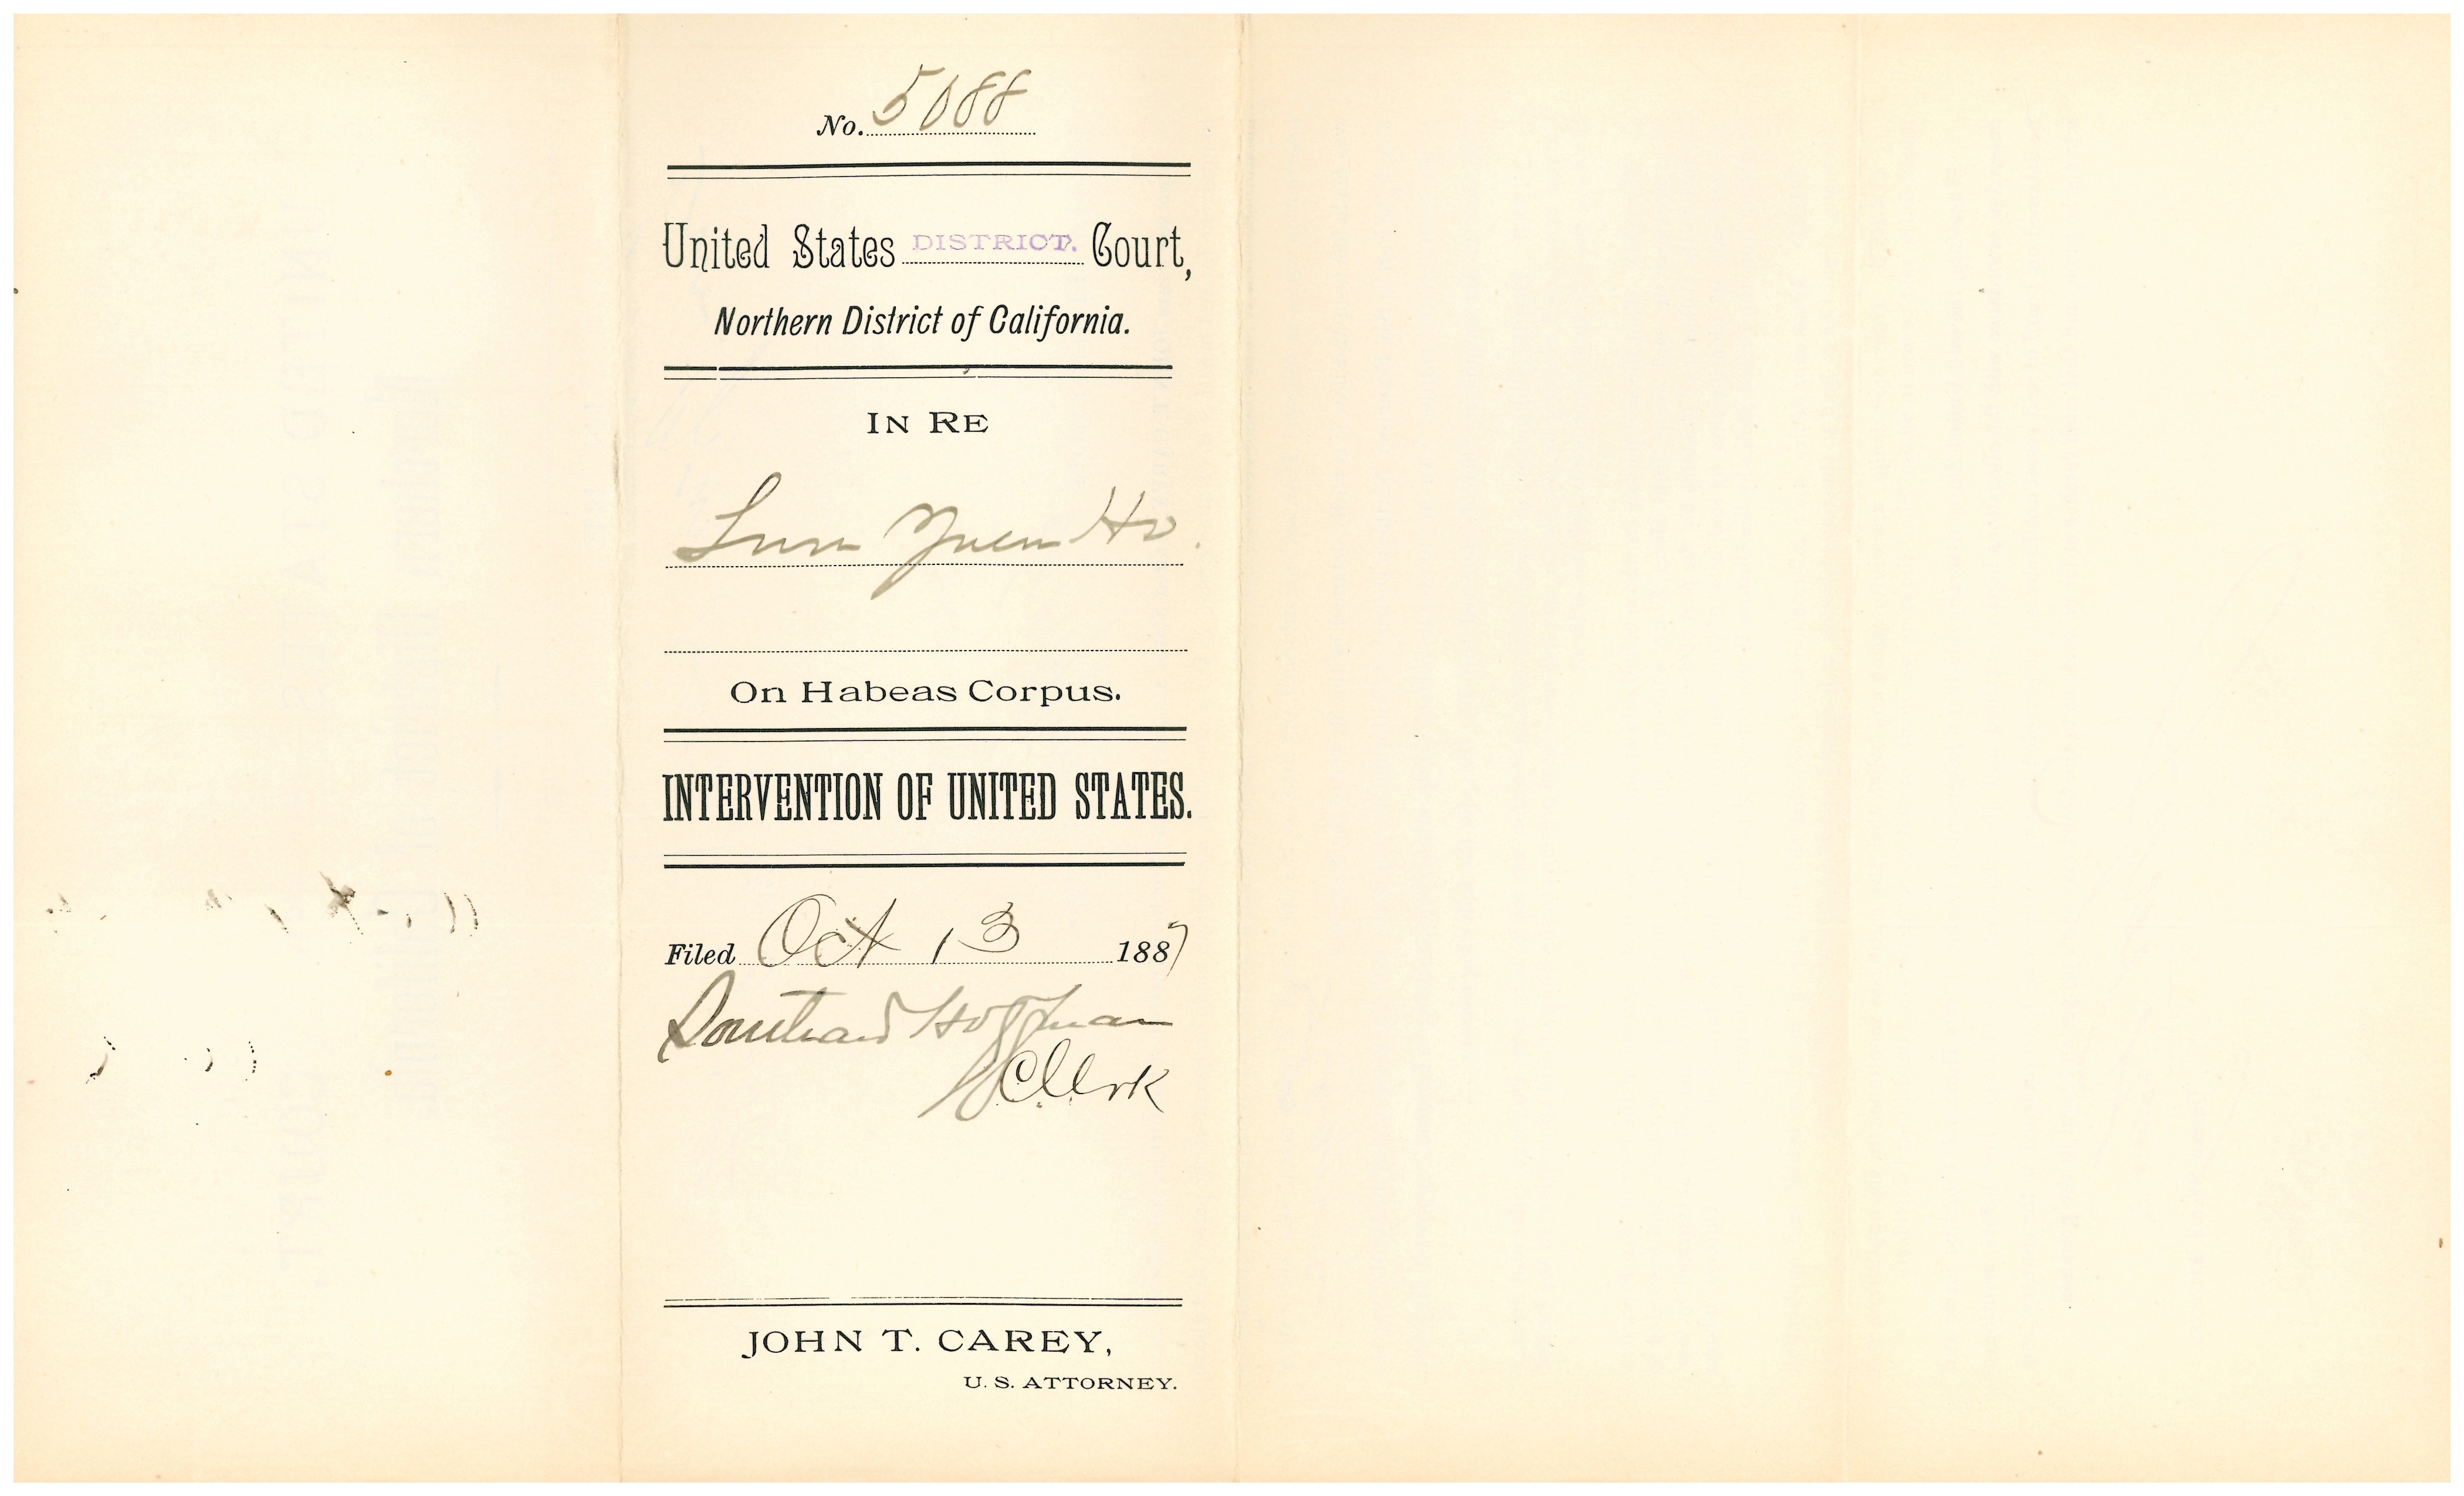 No. 5088
United States DISTRICT. Court,
Northern District of California.
IN RE
Yuen Ho.
On Habeas Corpus.
INTERVENTION OF UNITED STATES.
Filed Oct 13 1887
Southard Hoffman
Clerk
JOHN T. CAREY,
U. S. ATTORNEY.